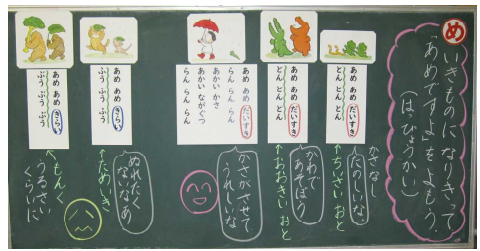 め
いきものになりきって
「あめですよ」をよもう。
(はっぴょうかい)
かさなし
たのしいな。
あめ あめ だいすき
とん とん とん
←ちいさい おと
かわで
あそぼう
あめ あめ だいすき
どん どん どん
←おおきい おと
あめ あめ だいすき
らん らん らん
あかい かさ
あかい ながぐつ
らん らん らん
かさがさせて
うれしいな
あめ あめ きらい
ふう ふう ふう
←ためいき
ぬれたく
ないなあ
あめ あめ きらい
ぶう ぶう ぶう
←もんく
うるさい
くらいに